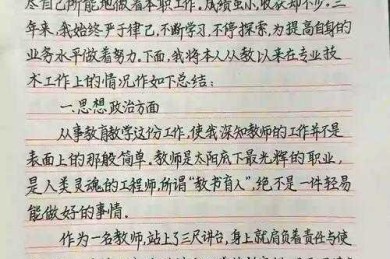 尽自己所能地做着本职工作,成绩虽小,收获却不少。三
年来,我始终严于律己,不断学习,不停探索,为提高自身的
业务水平做着努力。下面,我将本人从教以来在专业技
术工作上的情况作如下总结:
一.思想政治方面
从事教育教学这份工作,使我深知教师的工作并不是
表面上的那般简单。教师是太阳底下最光辉的职业,
是人类灵魂的工程师所谓“教书育人”,绝不是一件轻易
能做好的事情.
作为一名教师,站上了三尺讲台,身上就肩负着责任与使